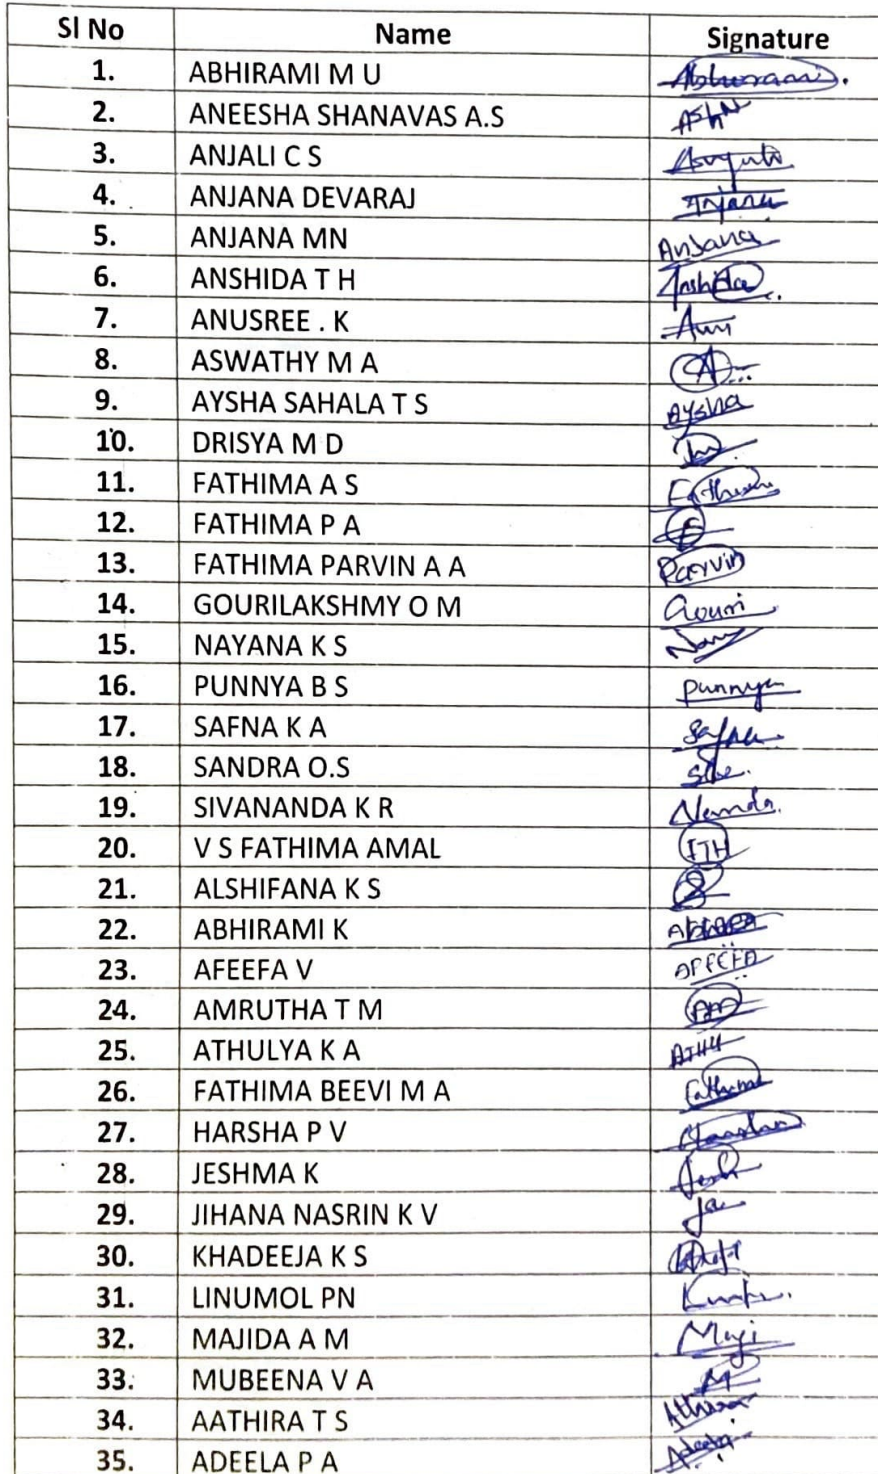 Sl No Name Signature
1. ABHIRAMI M U
2. ANEESHA SHANAVAS A.S
3. ANJALI C S
4. ANJANA DEVARAJ Anjana
5. ANJANA MN Anjana
6. ANSHIDA T H Anshida
7. ANUSREE . K
8. ASWATHY M A A
9. AYSHA SAHALA T S Aysha
10. DRISYA M D
11. FATHIMA A S Fathima
12. FATHIMA P A F
13. FATHIMA PARVIN A A Parvin
14. GOURILAKSHMY O M Gouri
15. NAYANA K S
16. PUNNYA B S Punnya
17. SAFNA K A Safna
18. SANDRA O.S
19. SIVANANDA K R Nanda
20. V S FATHIMA AMAL
21. ALSHIFANA K S
22. ABHIRAMI K
23. AFEEFA V AFEEFA
24. AMRUTHA T M AM
25. ATHULYA K A
26. FATHIMA BEEVI M A Fathima
27. HARSHA P V
28. JESHMA K Jesh
29. JIHANA NASRIN K V
30. KHADEEJA K S
31. LINUMOL PN
32. MAJIDA A M Maji
33. MUBEENA V A M
34. AATHIRA T S Athira
35. ADEELA P A Adeela